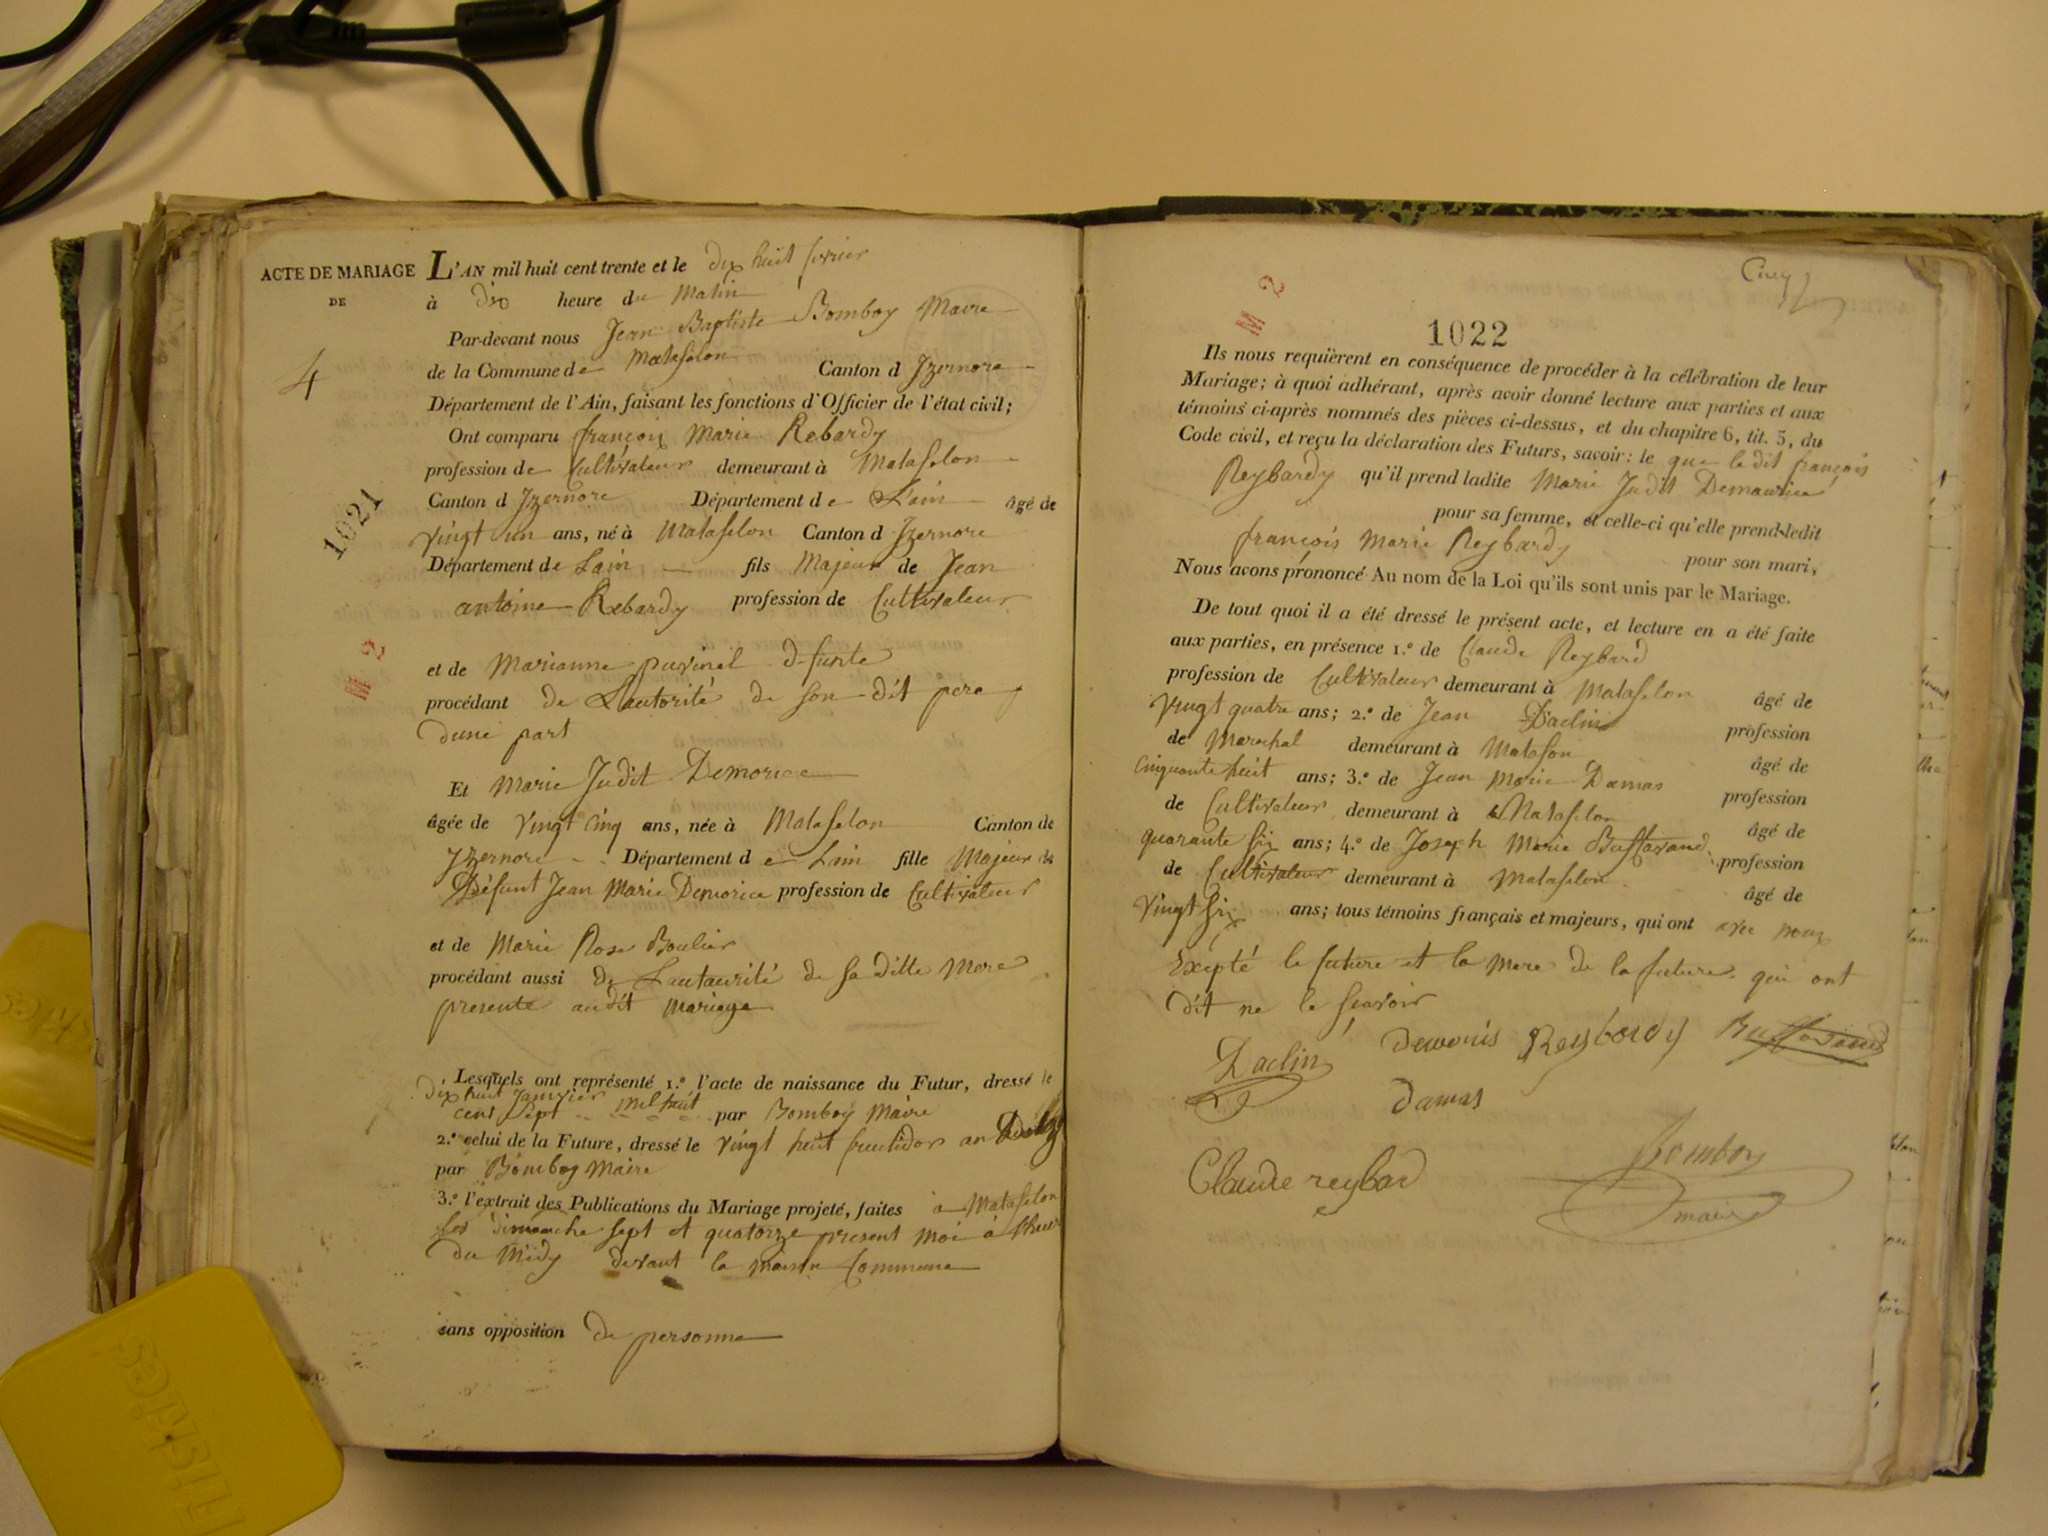 ACTE DE MARIAGE
DE
4
1021
M 2
L'AN mil huit cent trente et le dix huit fevrier
à dix heure du Matin
Par-devant nous Jean Baptiste Bomboy Maire
de la Commune de Matafelon Canton d Jzernore
Département de l'Ain, faisant les fonctions d'Officier de l'état civil;
Ont comparu françois Marie Rebardy
profession de Cultivateur demeurant à Matafelon
Canton d Jzernore Département de Lain âgé de
vingt un ans, né à Matafelon Canton d Jzernore
Département de Lain fils Majeur de Jean
antoine Rebardy profession de Cultivateur
et de Marianne defunte
procédant de Lautorité de son dit pere
dune part
Et Marie Judit Demorice
âgée de vingt cinq ans, née à Matafelon Canton de
Jzernore Département de Lain fille Majeur de
Défunt Jean Marie Demorice profession de Cultivateur
et de Marie Rose Boulier
procédant aussi de Lautaurité de sa ditte Mere
presente audit mariage
Lesquels ont représenté 1.º l'acte de naissance du Futur, dressé le
dix huit Janvier mil huit
cent Sept par Bomboy Maire
2.º celui de la Future, dressé le vingt huit fructidor an
par Bomboy Maire
3.º l'extrait des Publications du Mariage projeté, faites a Matafelon
les dimanche sept et quatorze present moi à
du Midy devant la maison Commune
sans opposition de personne
M 2
1022
Ils nous requièrent en conséquence de procéder à la célébration de leur
Mariage; à quoi adhérant, après avoir donné lecture aux parties et aux
témoins ci-après nommés des pièces ci-dessus, et du chapitre 6, tit. 5, du
Code civil, et reçu la déclaration des Futurs, savoir: le que le dit françois
Reybardy qu'il prend ladite Marie Judit Demaurice
pour sa femme, et celle-ci qu'elle prend-ledit
françois Marie Reybardy pour son mari,
Nous avons prononcé Au nom de la Loi qu'ils sont unis par le Mariage.
De tout quoi il a été dressé le présent acte, et lecture en a été faite
aux parties, en présence 1.º de Claude Reybard
profession de Cultivateur demeurant à Matafelon âgé de
vingt quatre ans; 2.º de Jean Daclin profession
de Marechal demeurant à Matafon âgé de
cinquante huit ans; 3.º de Jean Marie Damas profession
de Cultivateur demeurant à Matafelon âgé de
quarante six ans; 4.º de Joseph Marie Buffavand profession
de Cultivateur demeurant à Matafelon âgé de
vingt six ans; tous témoins français et majeurs, qui ont avec nous
Exepté le future et la mere de la future qui ont
dit ne le scavoir
Daclin Reybardy Buffavand
Damas
Claude reybard
Bomboy
maire